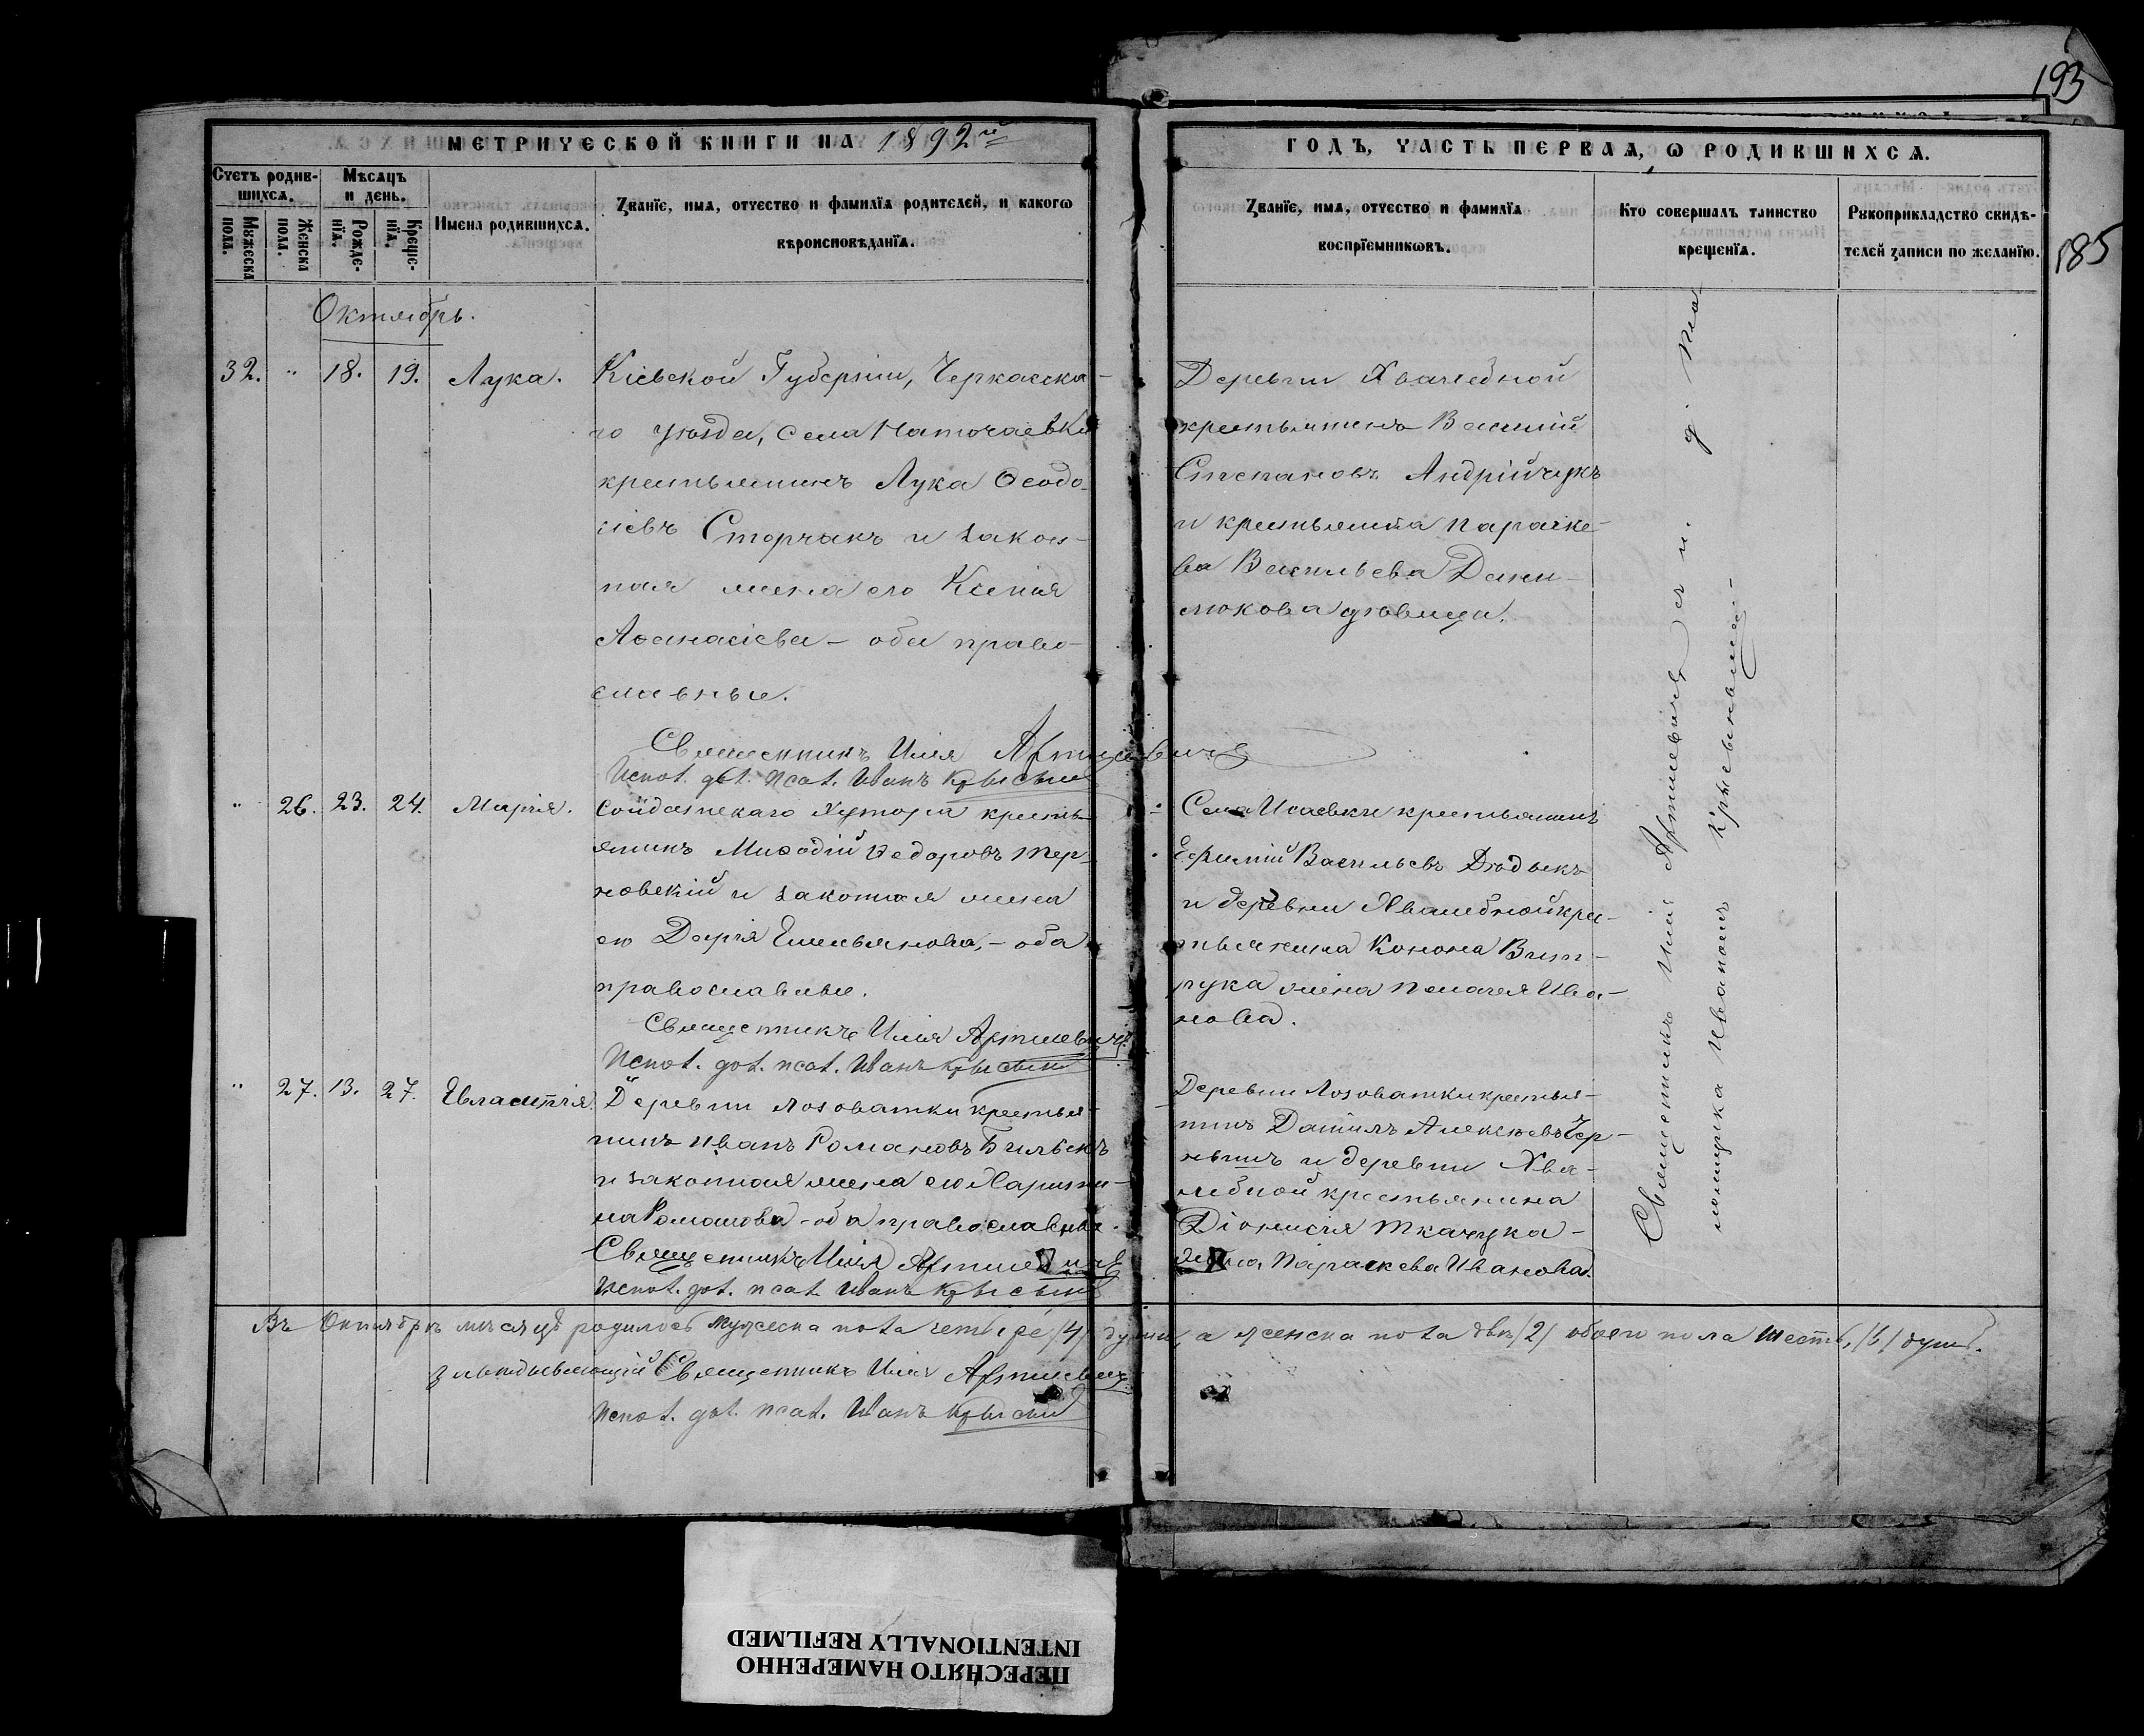 193
МЕТРИЧЕСКОЙ КНИГИ НА 1892й
ГОДЪ, ЧАСТЬ ПЕРВАЯ, Ѡ РОДИВШИХСЯ.
185
Счетъ родив-
шихся.
Мѣсяцъ
и день.
Мужеска
пола.
Женска
пола.
Рожде-
нїя.
Креще-
нїя.
Имена родившихся.
Званїе, имя, отчество и фамилїя родителей, и какогѡ
вѣроисповѣданїя.
Званїе, имя, отчество и фамилїя
воспрїемникѡвъ.
Кто совершалъ таинство
крещенїя.
Рукоприкладство свидѣ-
телей записи по желанїю.
Октябрь.
32. " 18. 19. Лука.
Кіевской Губерніи, Черкасска-
го уѣзда, села
крестьянинъ Лука Ѳеодо-
сіевъ Сторчакъ и закон-
ная жена его Ксенія
Аѳанасіева - оба право-
славные.
Священникъ Илія Артшевичъ
Испол. дол. псал. Иванъ Крысы
Деревни Хвалебной
крестьянинъ Василій
Степановъ Андрійчукъ
и крестьянка Параске-
ва Васильева Дани-
люкова дѣвица.
" 26. 23. 24. Марія.
хутора кресть-
янинъ Меѳодій Ѳедоровъ Тер-
новскій и законная жена
его Дарія Емельянова, - оба
православные.
Священникъ Илія Артшевичъ
Испол. дол. псал. Иванъ Крысы
Села Исаевки крестьянинъ
Евфимій Васильевъ Дѣдыкъ
и деревни Хвалебной кре-
стьянина Конона Вит-
рука жена Пелагея Ива-
нова.
" 27. 13. 27. Евластія.
Деревни Лозоватки крестья-
нинъ Иванъ Романовъ
и законная жена его Харити-
на Романова - оба православные.
Священникъ Илія Артшевичъ
Испол. дол. псал. Иванъ Крысы
Деревни Лозоватки крестья-
нинъ Даніилъ Алексѣевъ Чер-
нышъ и деревни Хва-
лебной крестьянина
Діонисія Ткачука -
жена Параскева Иванова.
Священникъ Илія Артшевичъ съ и. д. пса-
ломщика Иваномъ
Въ Октябрѣ мѣсяцѣ родилось мужеска пола четыре /4/ души, а женска пола двѣ /2/ обоего пола шесть, /6/ душъ.
Священникъ Илія Артшевичъ
Испол. дол. псал. Иванъ Крысы
ПЕРЕСНЯТО НАМЕРЕННО
INTENTIONALLY REFILMED